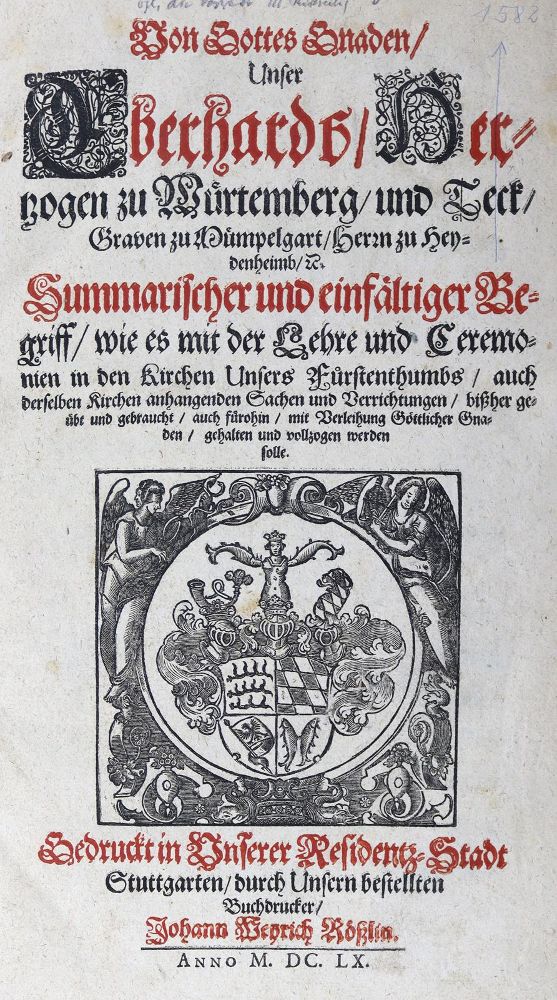 1582
Von Gottes Gnaden/
Unser
Eberhards/ Her-
tzogen zu Würtemberg/ und Teck/
Graven zu Mümpelgart/ Herrn zu Hey-
denheimb/ ꝛc.
Summarischer und einfältiger Be-
griff/ wie es mit der Lehre und Ceremo-
nien in den Kirchen Unsers Fürstenthumbs/ auch
derselben Kirchen anhangenden Sachen und Verrichtungen/ bißher ge-
übt und gebraucht/ auch fürohin/ mit Verleihung Göttlicher Gna-
den/ gehalten und vollzogen werden
solle.
Gedruckt in Unserer Residentz-Stadt
Stuttgarten/ durch Unsern bestellten
Buchdrucker/
Johann Weyrich Rößlin.
ANNO M. DC. LX.